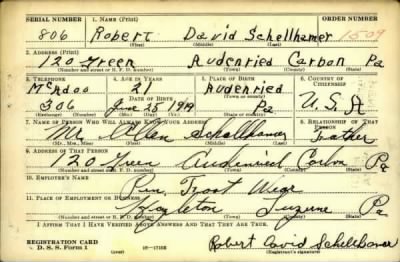 SERIAL NUMBER 1. NAME (Print) ORDER NUMBER
806 Robert David Schellhamer 1509
(First) (Middle) (Last)
2. ADDRESS (Print)
120 Green Audenried Carbon Pa
(Number and street or R. F. D. number) (Town) (County) (State)
3. TELEPHONE 4. AGE IN YEARS 5. PLACE OF BIRTH 6. COUNTRY OF CITIZENSHIP
McAdoo 21 Audenried
DATE OF BIRTH
306 June 25 1919 Pa U.S.A
(Exchange) (Number) (Mo.) (Day) (Yr.) (State or country)
7. NAME OF PERSON WHO WILL ALWAYS KNOW YOUR ADDRESS 8. RELATIONSHIP OF THAT PERSON
Mr. Allen Schellhamer Father
(Mr., Mrs., Miss) (First) (Middle) (Last)
9. ADDRESS OF THAT PERSON
120 Green Audenried Carbon Pa
(Number and street or R. F. D. number) (Town) (County) (State)
10. EMPLOYER'S NAME
11. PLACE OF EMPLOYMENT OR BUSINESS
Hazleton Luzerne Pa
(Number and street or R. F. D. number) (Town) (County) (State)
I AFFIRM THAT I HAVE VERIFIED ABOVE ANSWERS AND THAT THEY ARE TRUE.
REGISTRATION CARD
D. S. S. Form 1 16—17105 Robert David Schellhamer
(Registrant's signature)